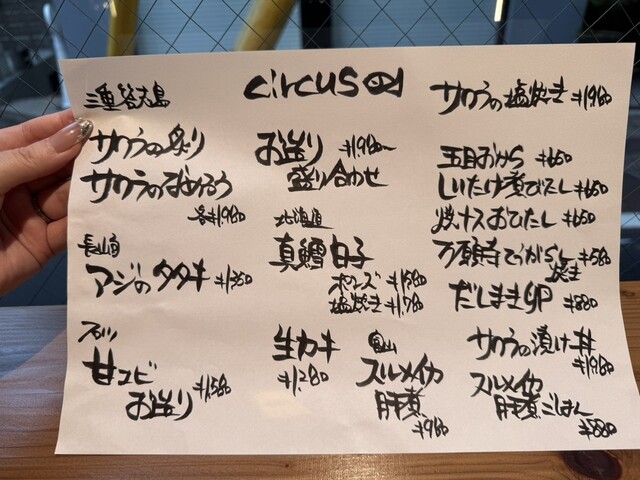 circus
三重答志島
サワラの炙り
サワラのなめろう
各¥1980
長崎
アジのタタキ
石川
甘エビ
お造り ¥1580
お造り ¥1980
盛り合わせ
北海道
真鱈白子
ポン酢 ¥1580
塩焼き ¥1780
生カキ
¥1280
富山
スルメイカ
肝煮
¥980
サワラの塩焼き ¥1980
五目おから ¥650
しいたけ煮びたし ¥650
焼ナスおひたし ¥650
万願寺とうがらし ¥580
焼き
だしまき ¥880
サワラの漬け丼
¥1980
スルメイカ
肝煮ごはん
¥880